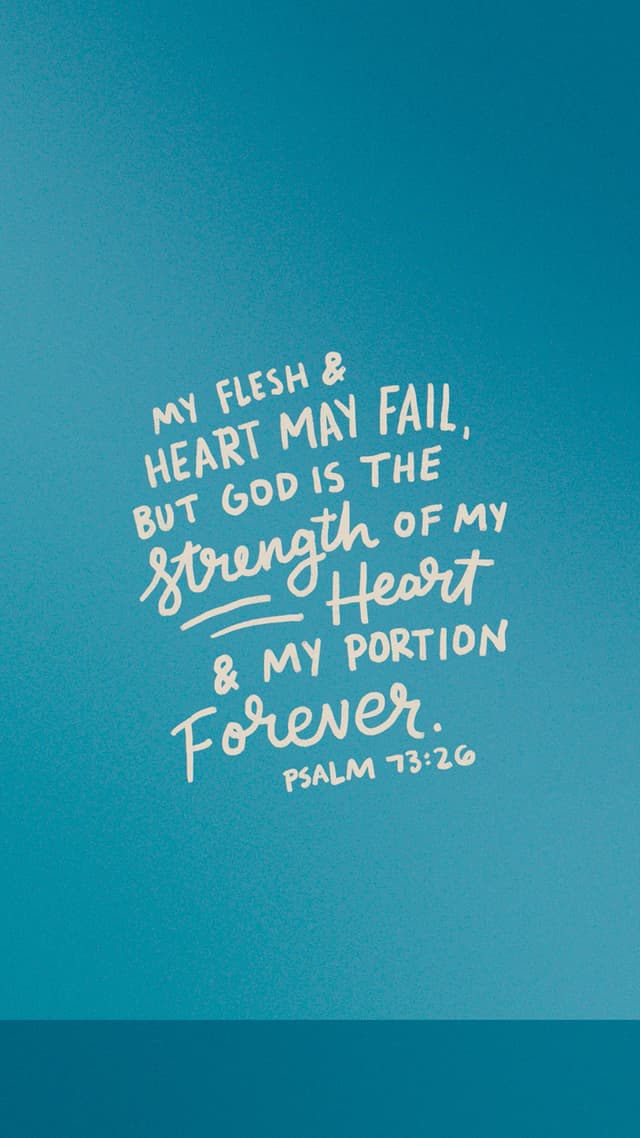 MY FLESH &
HEART MAY FAIL,
BUT GOD IS THE
Strength OF MY
Heart
& MY PORTION
Forever.
PSALM 73:26